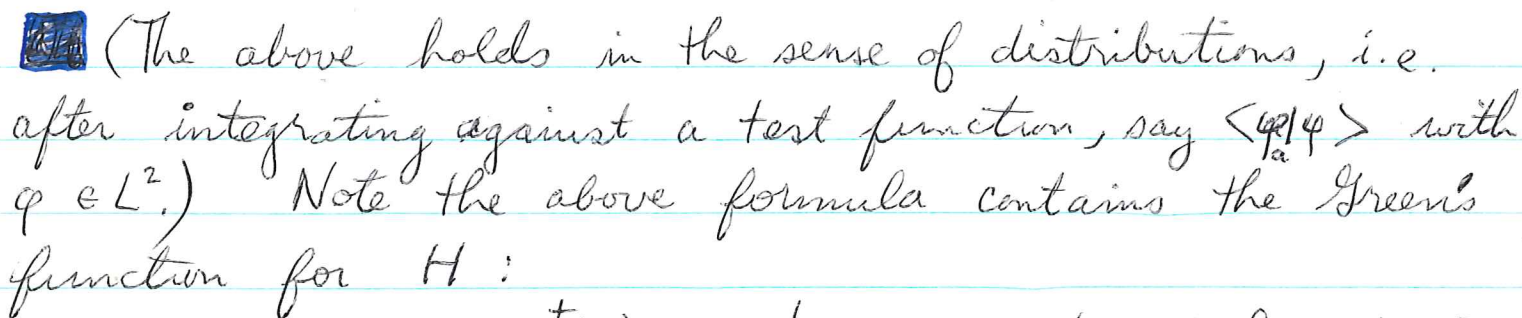 (The above holds in the sense of distributions, i.e.
after integrating against a test function, say <φ_a|ψ> with
φ ∈ L².) Note the above formula contains the Green's
function for H :